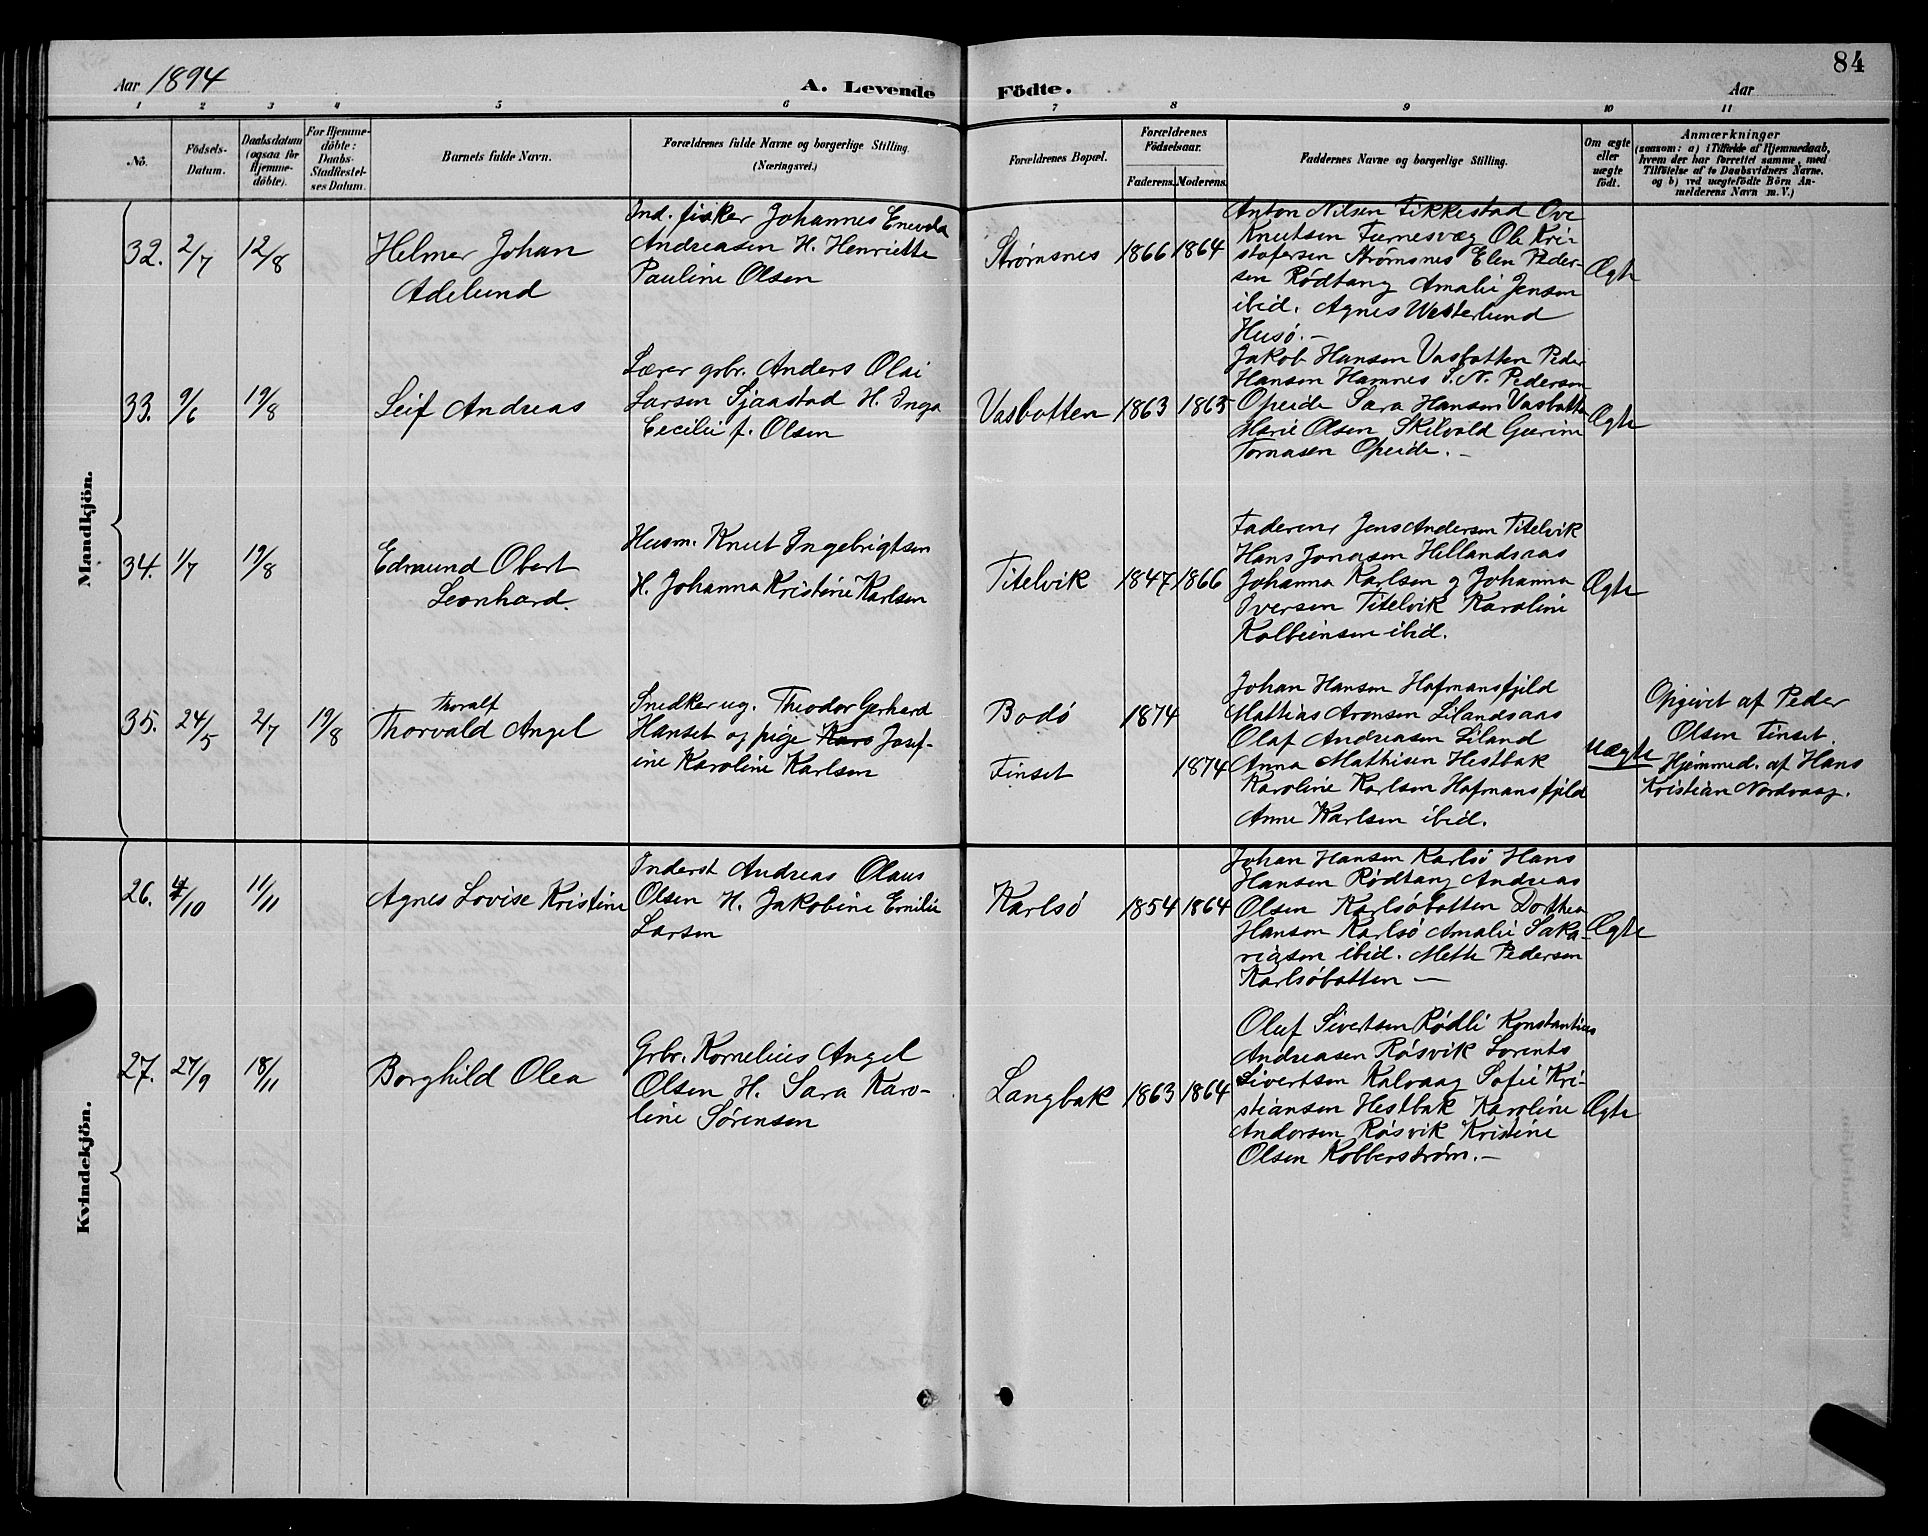 84
Aar 1894
A. Levende Födte.
Aar
1 2 3 4 5 6 7 8 9 10 11
No.
Födsels-
Datum.
Daabsdatum
(ogsaa for
Hjemme-
döbte).
For Hjemme-
döbte:
Daabs-
Stadfæstel-
ses Datum.
Barnets fulde Navn.
Forældrenes fulde Navne og borgerlige Stilling.
(Næringsvei.)
Forældrenes Bopæl.
Forældrenes
Födselsaar.
Faderens. Moderens.
Faddernes Navne og borgerlige Stilling.
Om ægte
eller
uægte
födt.
Anmærkninger
(saasom: a) i Tilfælde af Hjemmedaab,
hvem der har forrettet samme, med
Tilföielse af to Daabsvidners Navne.
og b) ved uægtefödte Börn An-
melderens Navn m. V.)
Mandkjön.
32. 2/7 12/8
Helmer Johan
Adelund
Ind. fisker Johannes Enevda
Andreasen H. Henriette
Pauline Olsen
Strømsnes 1866 1864
Anton Nilsen Fikkestad Ove
Knutsen Furnesvæg Ole Kri-
stofersen Strømsnes Elen Peder-
sen Rødtang Amalie Jensen
ibid. Agnes Westerlund
Husö. –
Ægte
33. 9/6 19/8
Leif Andreas
Lærer grbr. Anders Olai
Larsen Sjaastad H. Inga
Cecilie f. Olsen
Vasbotten 1863 1865
Jakob Hansen Vasbotten Peder
Hansen Hamnes S. N. Pedersen
Opeide Sara Hansen Vasbotten
Marie Olsen Skilvold Gurine
Tomasen Opeide. –
Ægte
34. 1/7 19/8
Edmund Obert
Leonhard.
Husm. Knut Ingebrigtsen
H. Johanna Kristine Karlsen
Titelvik 1847 1866
Faderen Jens Andersen Titelvik
Hans Jonasen Hillandsaas
Johanna Karlsen og Johanna
Iversen Titelvik Karoline
Kolbeinsen ibid.
Ægte
35. 24/5 2/7 19/8
Thoralf
Thorvald Angel
Snedker ug. Theodor Gerhard
Hanset og pige Karo Josef-
ine Karoline Karlsen
Bodö 1874
Finset 1874
Johan Hansen Hofmansfjild
Mathias Aronsen Lilandsaas
Olaf Andreasen Liland
Anna Mathisen Hestbak
Karoline Karlsen Hofmansfjild
Anne Karlsen ibid.
Uægte
Opgivet af Peder
Olsen Finset.
Hjemmed. af Hans
Kristian Nordvaag.
Kvindekjön.
26. 4/10 11/11
Agnes Lovise Kristine
Inderst Andreas Olaus
Olsen H. Jakobine Emilie
Larsen
Karlsö 1854 1864
Johan Hansen Karlsö Hans
Hansen Rödtang Andreas
Olsen Karlsöbotten Dorthea
Hansen Karlsö Amalie Saka-
riasen ibid. Mette Pedersen
Karlsöbotten —
Ægte
27. 27/9 18/11
Borghild Olea
Grbr. Kornelius Angel
Olsen H. Sara Karo-
line Sørensen
Langbak 1863 1864
Oluf Sivertsen Rødli Konstantius
Andreasen Røsvik Lorents
Sivertsen Kalvaag Sofie Kri-
stiansen Hestbak Karoline
Andersen Røsvik Kristine
Olsen Kobberstrøm. –
Ægte